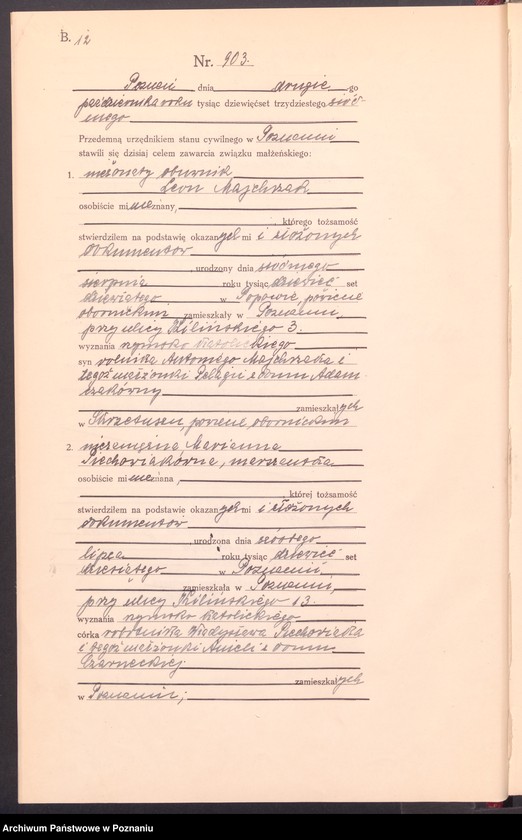 B. 12
Nr. 903.
Poznań dnia drugiego
października roku tysiąc dziewięćset trzydziestego siód-
mego
Przedemną urzędnikiem stanu cywilnego w Poznaniu
stawili się dzisiaj celem zawarcia związku małżeńskiego:
1. nieżonaty
Leon Majchrzak
osobiście mi nieznany,
którego tożsamość
stwierdziłem na podstawie okazanych mi i złożonych
dokumentów
urodzony dnia siódmego
sierpnia roku tysiąc dziewięć set
dziewiątego w Popowie, powiecie
obornickim zamieszkały w Poznaniu,
przy ulicy Kilińskiego 3.
wyznania rzymsko katolickiego
syn rolnika Antoniego Majchrzaka i
tegoż małżonki Pelagii z domu Adam-
czakówny
zamieszkałych
w powiecie obornickim
2. niezamężna, Marianna
Piechowiakówna,
osobiście mi nieznana,
której tożsamość
stwierdziłem na podstawie okazanych mi i złożonych
dokumentów
urodzona dnia szóstego
lipca roku tysiąc dziewięć set
dziesiątego w Poznaniu
zamieszkała w Poznaniu,
przy ulicy Kilińskiego 13.
wyznania rzymsko katolickiego
córka robotnika Władysława Piechowiaka
i tegoż małżonki Anieli z domu
Czarneckiej
zamieszkałych
w Poznaniu;
Archiwum Państwowe w Poznaniu